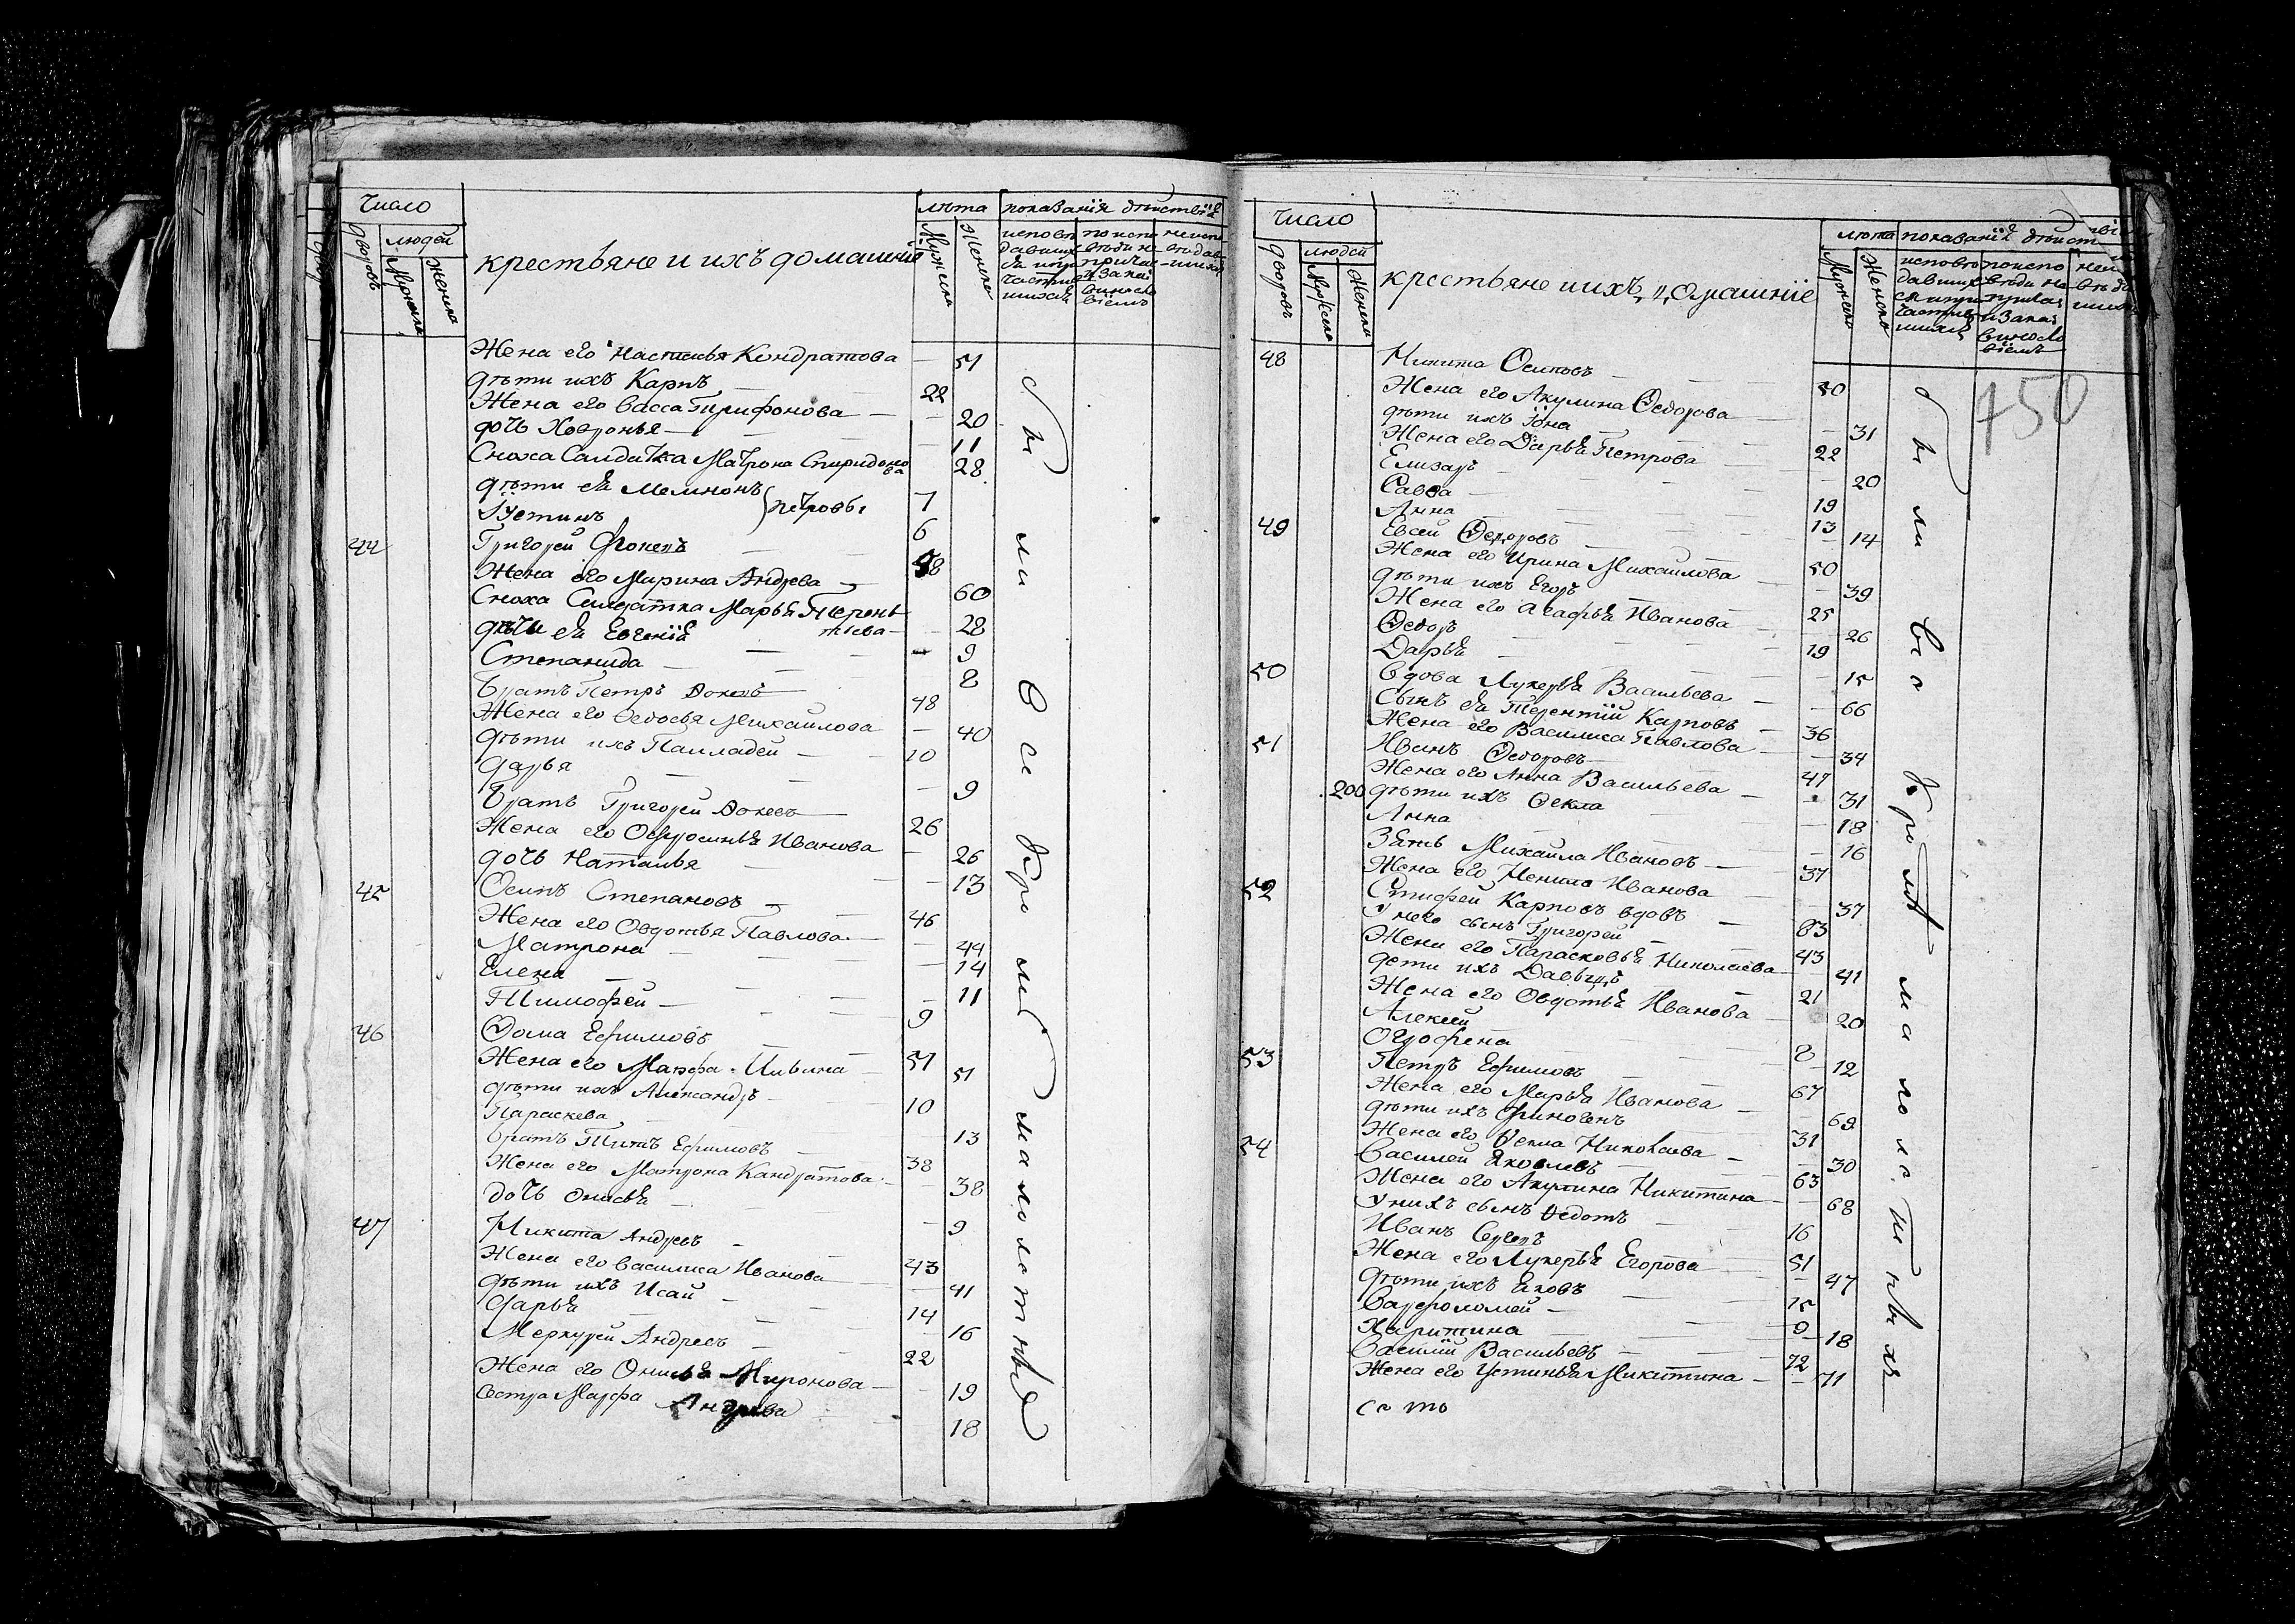 Число
дворовъ
людей
Мужеска
Женска
крестьяне и ихъ домашніе
лѣта
Мужеска
Женска
показанія дѣйствій
исповѣдавшихся и причастившихся
Жена его Настасья Кондратова — 51
дѣти ихъ Карпъ 22
Жена его Васса Трифонова — 20
дочь Ховронья — 11
Сноха Салдатка Матрона Спиридонова 28
дѣти ея Мемнонъ } Петровы 7
Іустинъ 6
44 Григорей Фокеевъ 78
Жена его Марина Андреева 60
Сноха Салдатка Марья Терентьева — 28
дѣти ея Евгенія 9
Степанида 8
Братъ Петръ Фокеевъ 48
Жена его Федосья Михаилова — 40
дѣти ихъ Палладей — 10
дарья — 9
Братъ Григорей Фокеевъ 26
Жена его Офросинья Иванова — 26
дочь Наталья — 13
45 Осипъ Степановъ 46
Жена его Овдотья Павлова — 44
Матрона — 14
Елена — 11
Тимофей — 9
46 Фома Ефимовъ 51
Жена его Марфа Ильина 51
дѣти ихъ Александръ 10
Параскева — 13
братъ Титъ Ефимовъ 38
Жена его Матрона Кандратова — 38
дочь Онисья — 9
47 Никита Андреевъ 43
Жена его Василиса Иванова — 41
дѣти ихъ Исай 14
Дарья — 16
Меркурей Андреевъ 22
Жена его Онисья Миронова — 19
Сестра Марфа Андреева 18
были Все Хромѣ малолѣтныхъ
Число
дворовъ
людей
Мужеска
Женска
крестьяне и ихъ домашніе
лѣта
Мужеска
Женска
показаніе дѣйст
150
48 Никита Осиповъ 50
Жена его Акулина Федорова — 31
дѣти ихъ Іона 22
Жена его Дарья Петрова — 20
Елизаръ 19
Савва 13
Анна — 14
49 Евсей Федоровъ 50
Жена его Ирина Михаилова — 39
дѣти ихъ Егоръ 25
Жена его Агафья Иванова — 26
Федоръ 19
Дарья — 15
50 вдова Лукерья Васильева — 66
Сынъ ея Терентій Карповъ 36
Жена его Василиса Павлова — 34
51 Иванъ Федоровъ 47
Жена его Анна Васильева — 31
200 дѣти ихъ Фекла — 18
Анна — 16
Зять Михаила Ивановъ 37
Жена его Ненила Иванова — 37
52 Карповъ вдовъ 83
У него сынъ Григорей 43
Жена его Парасковья Николаева 41
дети ихъ Давыдъ 21
Жена его Овдотья Иванова 20
Алексей 8
Огрофена — 12
53 Петръ Ефимовъ 67
Жена его Марья Иванова — 69
дѣти ихъ Финогенъ 31
Жена его Фекла Николаева — 30
54 Василей Яковлевъ 63
Жена его Акулина Никитина — 68
У нихъ сынъ Федотъ 16
Иванъ Сергеевъ 51
Жена его Лукерья Егорова — 47
дѣти ихъ Яковъ 15
Варфоломей 9
Харитина — 18
Василій Васильевъ 72
Жена его Устинья Микитина — 71
были все Кромѣ малолетныхъ
се то